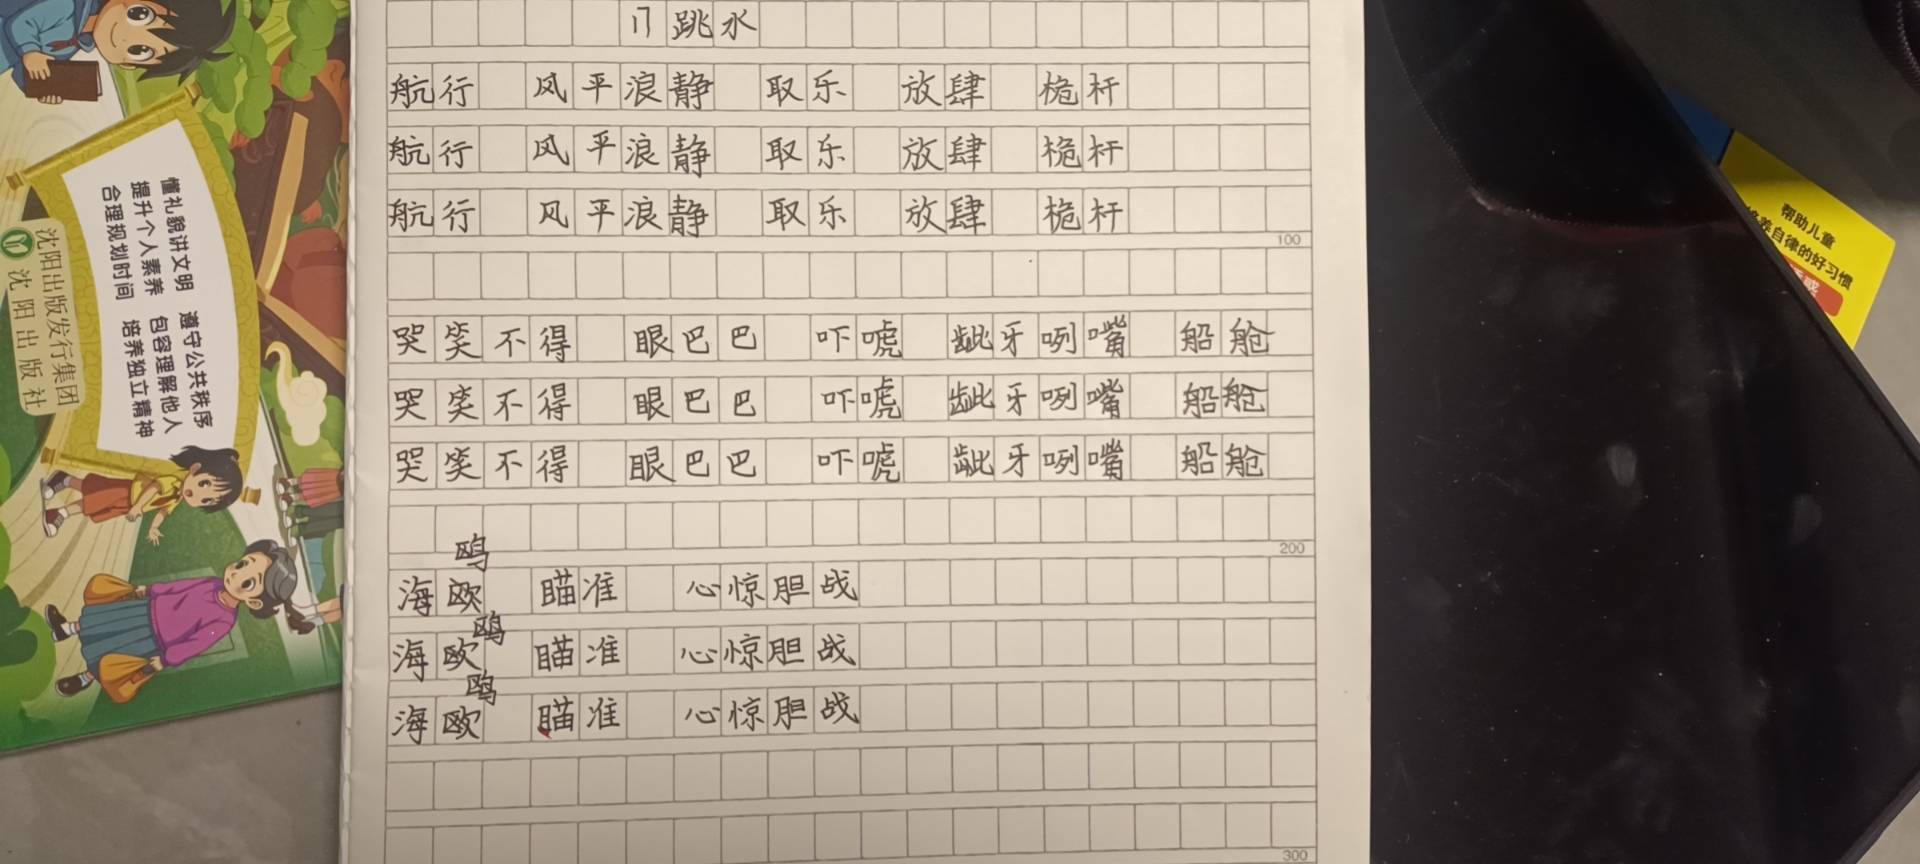 17 跳水
航行 风平浪静 取乐 放肆 桅杆
航行 风平浪静 取乐 放肆 桅杆
航行 风平浪静 取乐 放肆 桅杆
100
哭笑不得 眼巴巴 吓唬 龇牙咧嘴 船舱
哭笑不得 眼巴巴 吓唬 龇牙咧嘴 船舱
哭笑不得 眼巴巴 吓唬 龇牙咧嘴 船舱
200
鸥
海欧 瞄准 心惊胆战
鸥
海欧 瞄准 心惊胆战
鸥
海欧 瞄准 心惊胆战
300
懂礼貌讲文明 遵守公共秩序
提升个人素养 包容理解他人
合理规划时间 培养独立精神
沈阳出版发行集团
沈阳出版社
帮助儿童
培养自律的好习惯